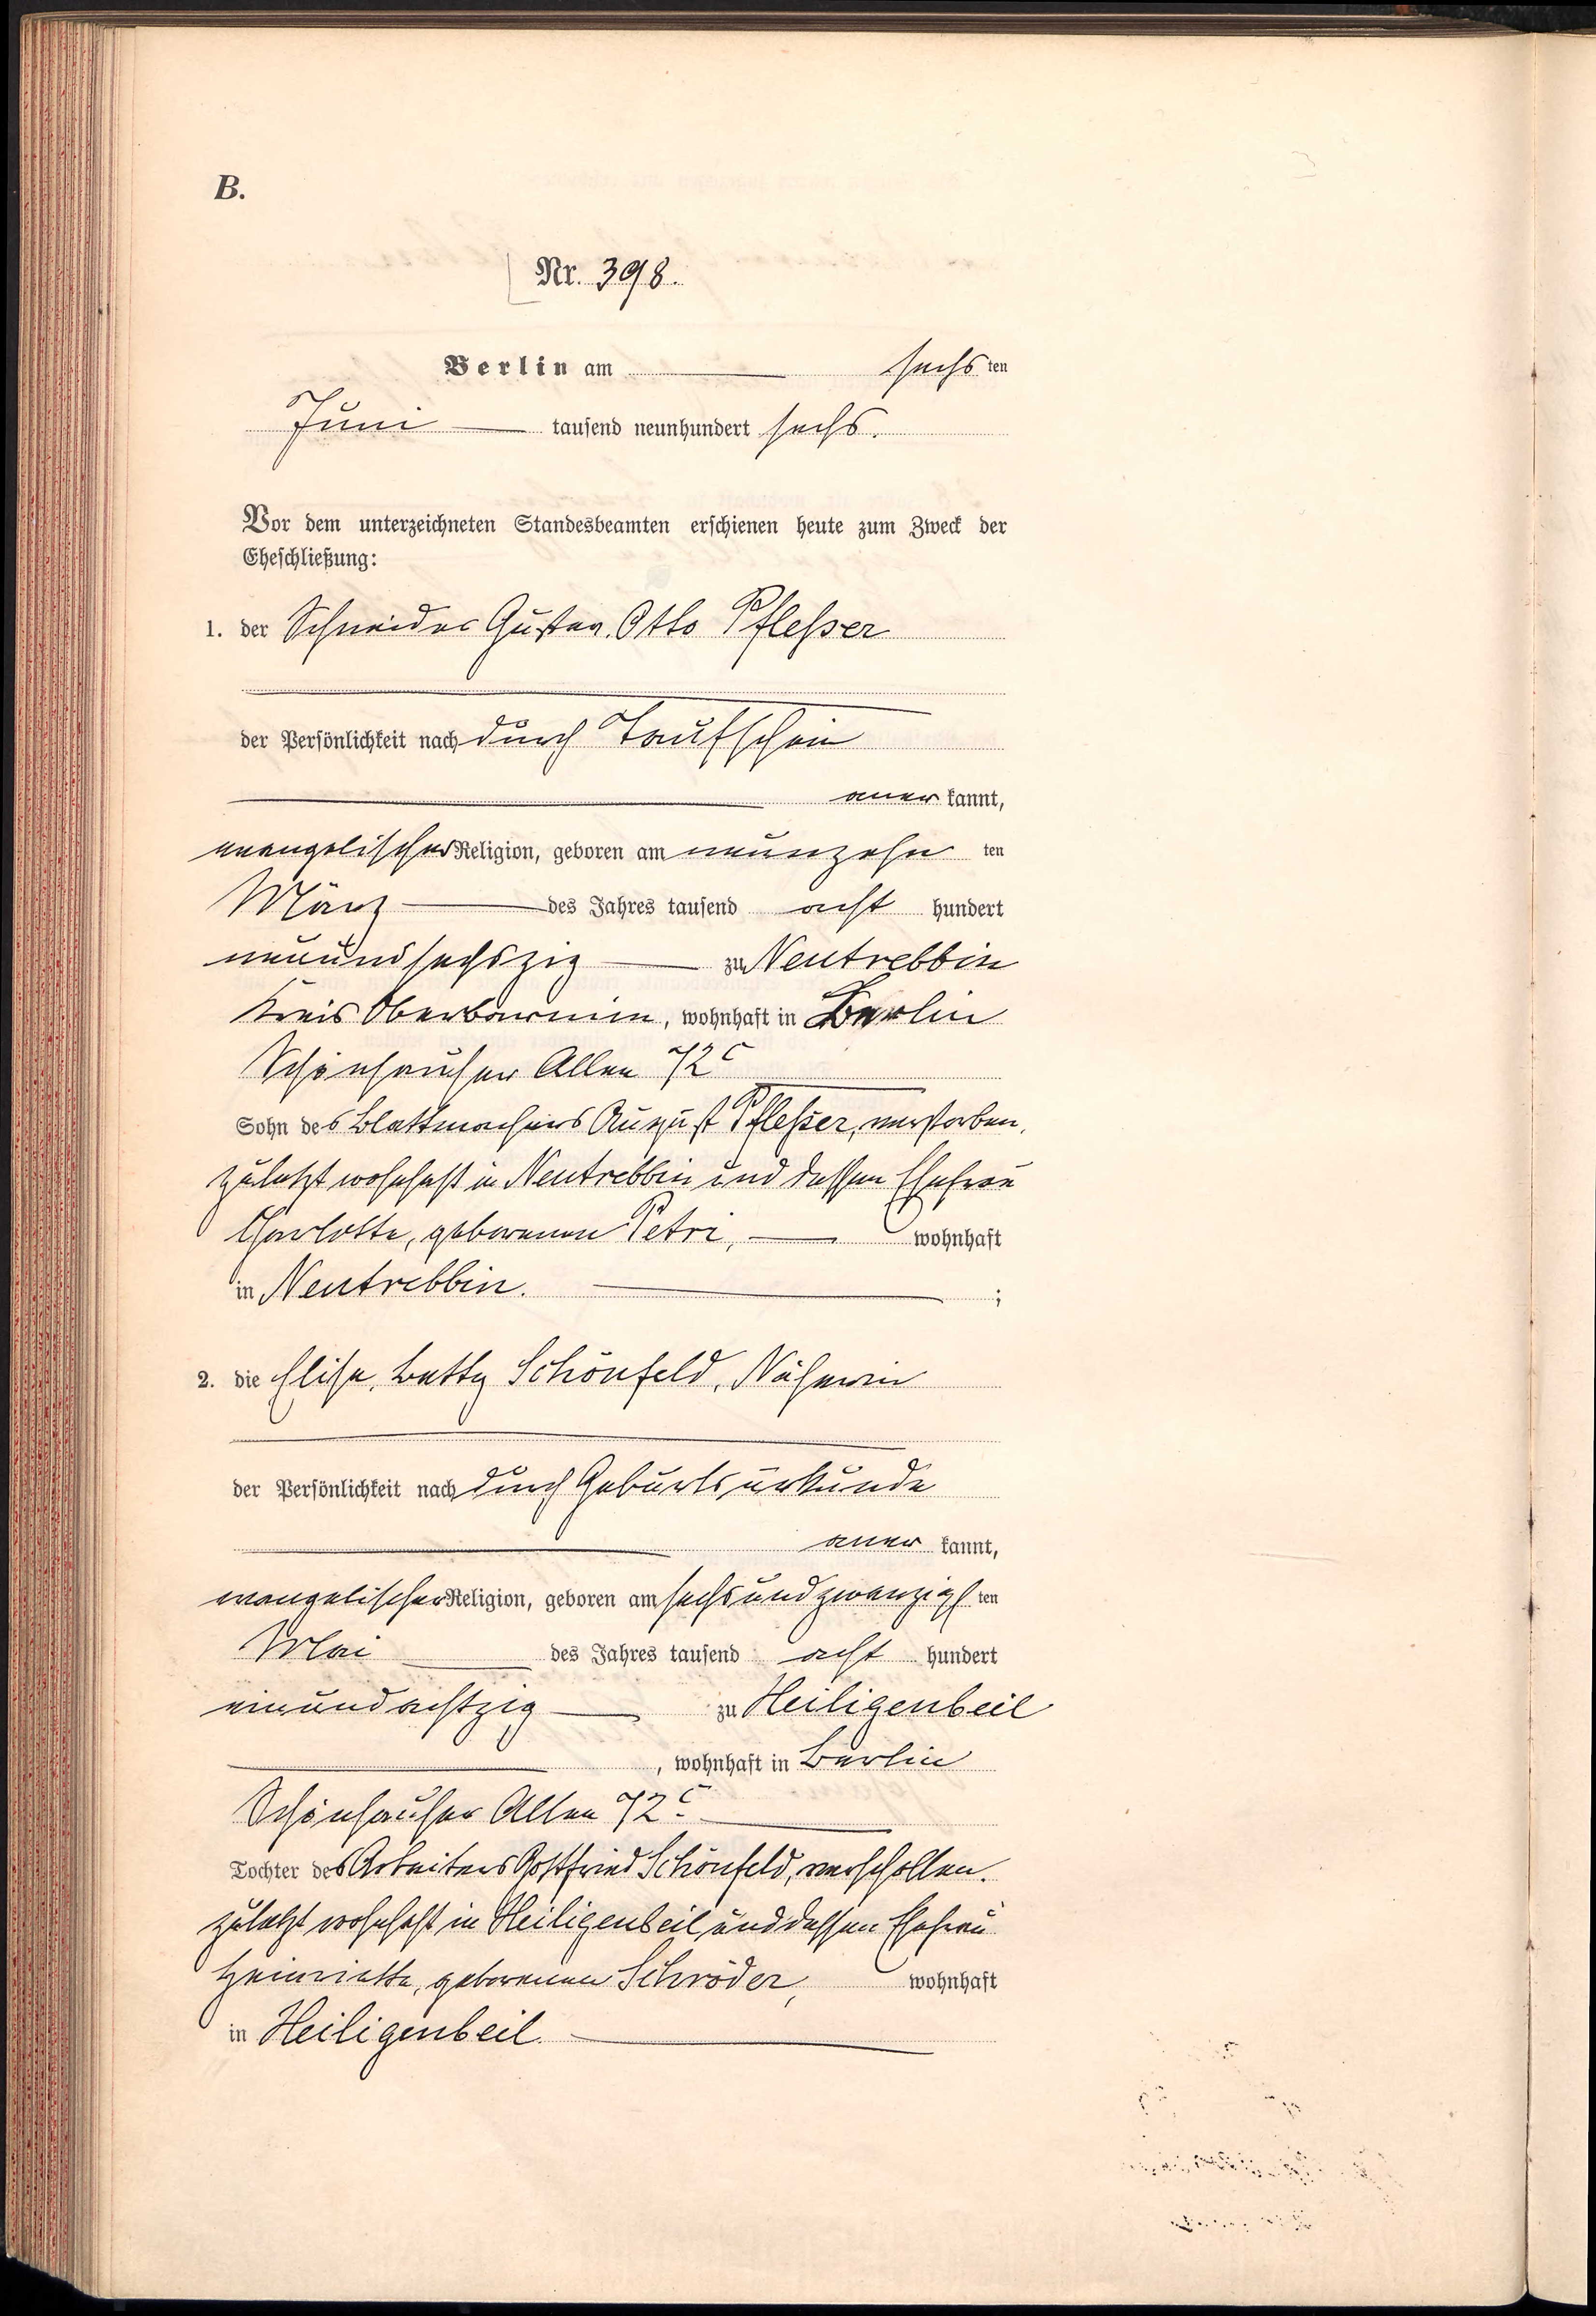 B.
Nr. 398.
Berlin am sechsten
Juni tausend neunhundert sechs.
Vor dem unterzeichneten Standesbeamten erschienen heute zum Zweck der
Eheschließung:
1. der Schneider Gustav Otto Pfleßer
der Persönlichkeit nach durch Taufschein
anerkannt,
evangelischer Religion, geboren am neunzehnten
März des Jahres tausend acht hundert
neunundsechszig zu Neutrebbin
Kreis Oberbarnim, wohnhaft in Berlin
Schönhauser Allee 72c
Sohn des Blattmachers August Pfleßer, verstorben,
zuletzt wohnhaft in Neutrebbin und dessen Ehefrau
Charlotte, geborenen Petri, wohnhaft
in Neutrebbin. ;
2. die Elise, Betty Schönfeld, Näherin
der Persönlichkeit nach durch Geburtsurkunde
anerkannt,
evangelischer Religion, geboren am sechsundzwanzigsten
Mai des Jahres tausend acht hundert
einundachtzig zu Heiligenbeil
, wohnhaft in Berlin
Schönhauser Allee 72c.
Tochter des Arbeiters Gottfried Schönfeld, verschollen.
zuletzt wohnhaft in Heiligenbeil und dessen Ehefrau
Henriette, geborenen Schröder, wohnhaft
in Heiligenbeil.